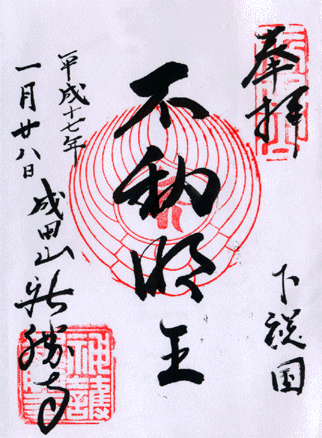 奉拝
下総国
不動明王
平成十七年
一月廿八日 成田山新勝寺